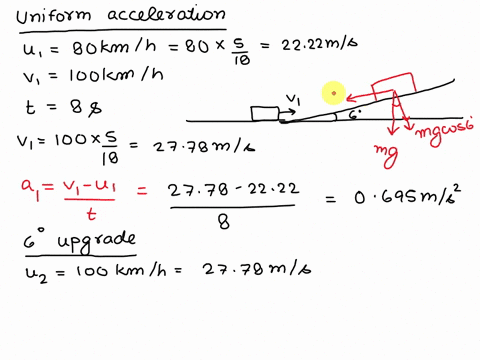 Uniform acceleration
u₁ = 80 km/h = 80 × 5/18 = 22.22 m/s
v₁ = 100 km/h
t = 8 s
v₁ = 100 × 5/18 = 27.78 m/s
v₁
6°
mg
mg cos6
a₁ = v₁-u₁/t = 27.78 - 22.22/8 = 0.695 m/s²
6° upgrade
u₂ = 100 km/h = 27.78 m/s